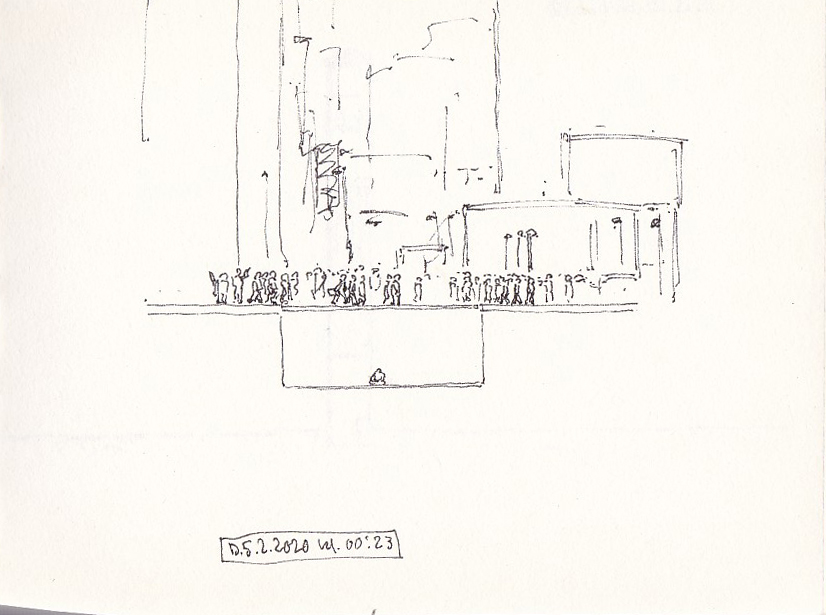 D.5.2.2020 kl. 00:23